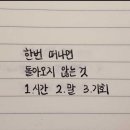 한번 떠나면
돌아오지 않는 것
1 시간 2. 말 3. 기회